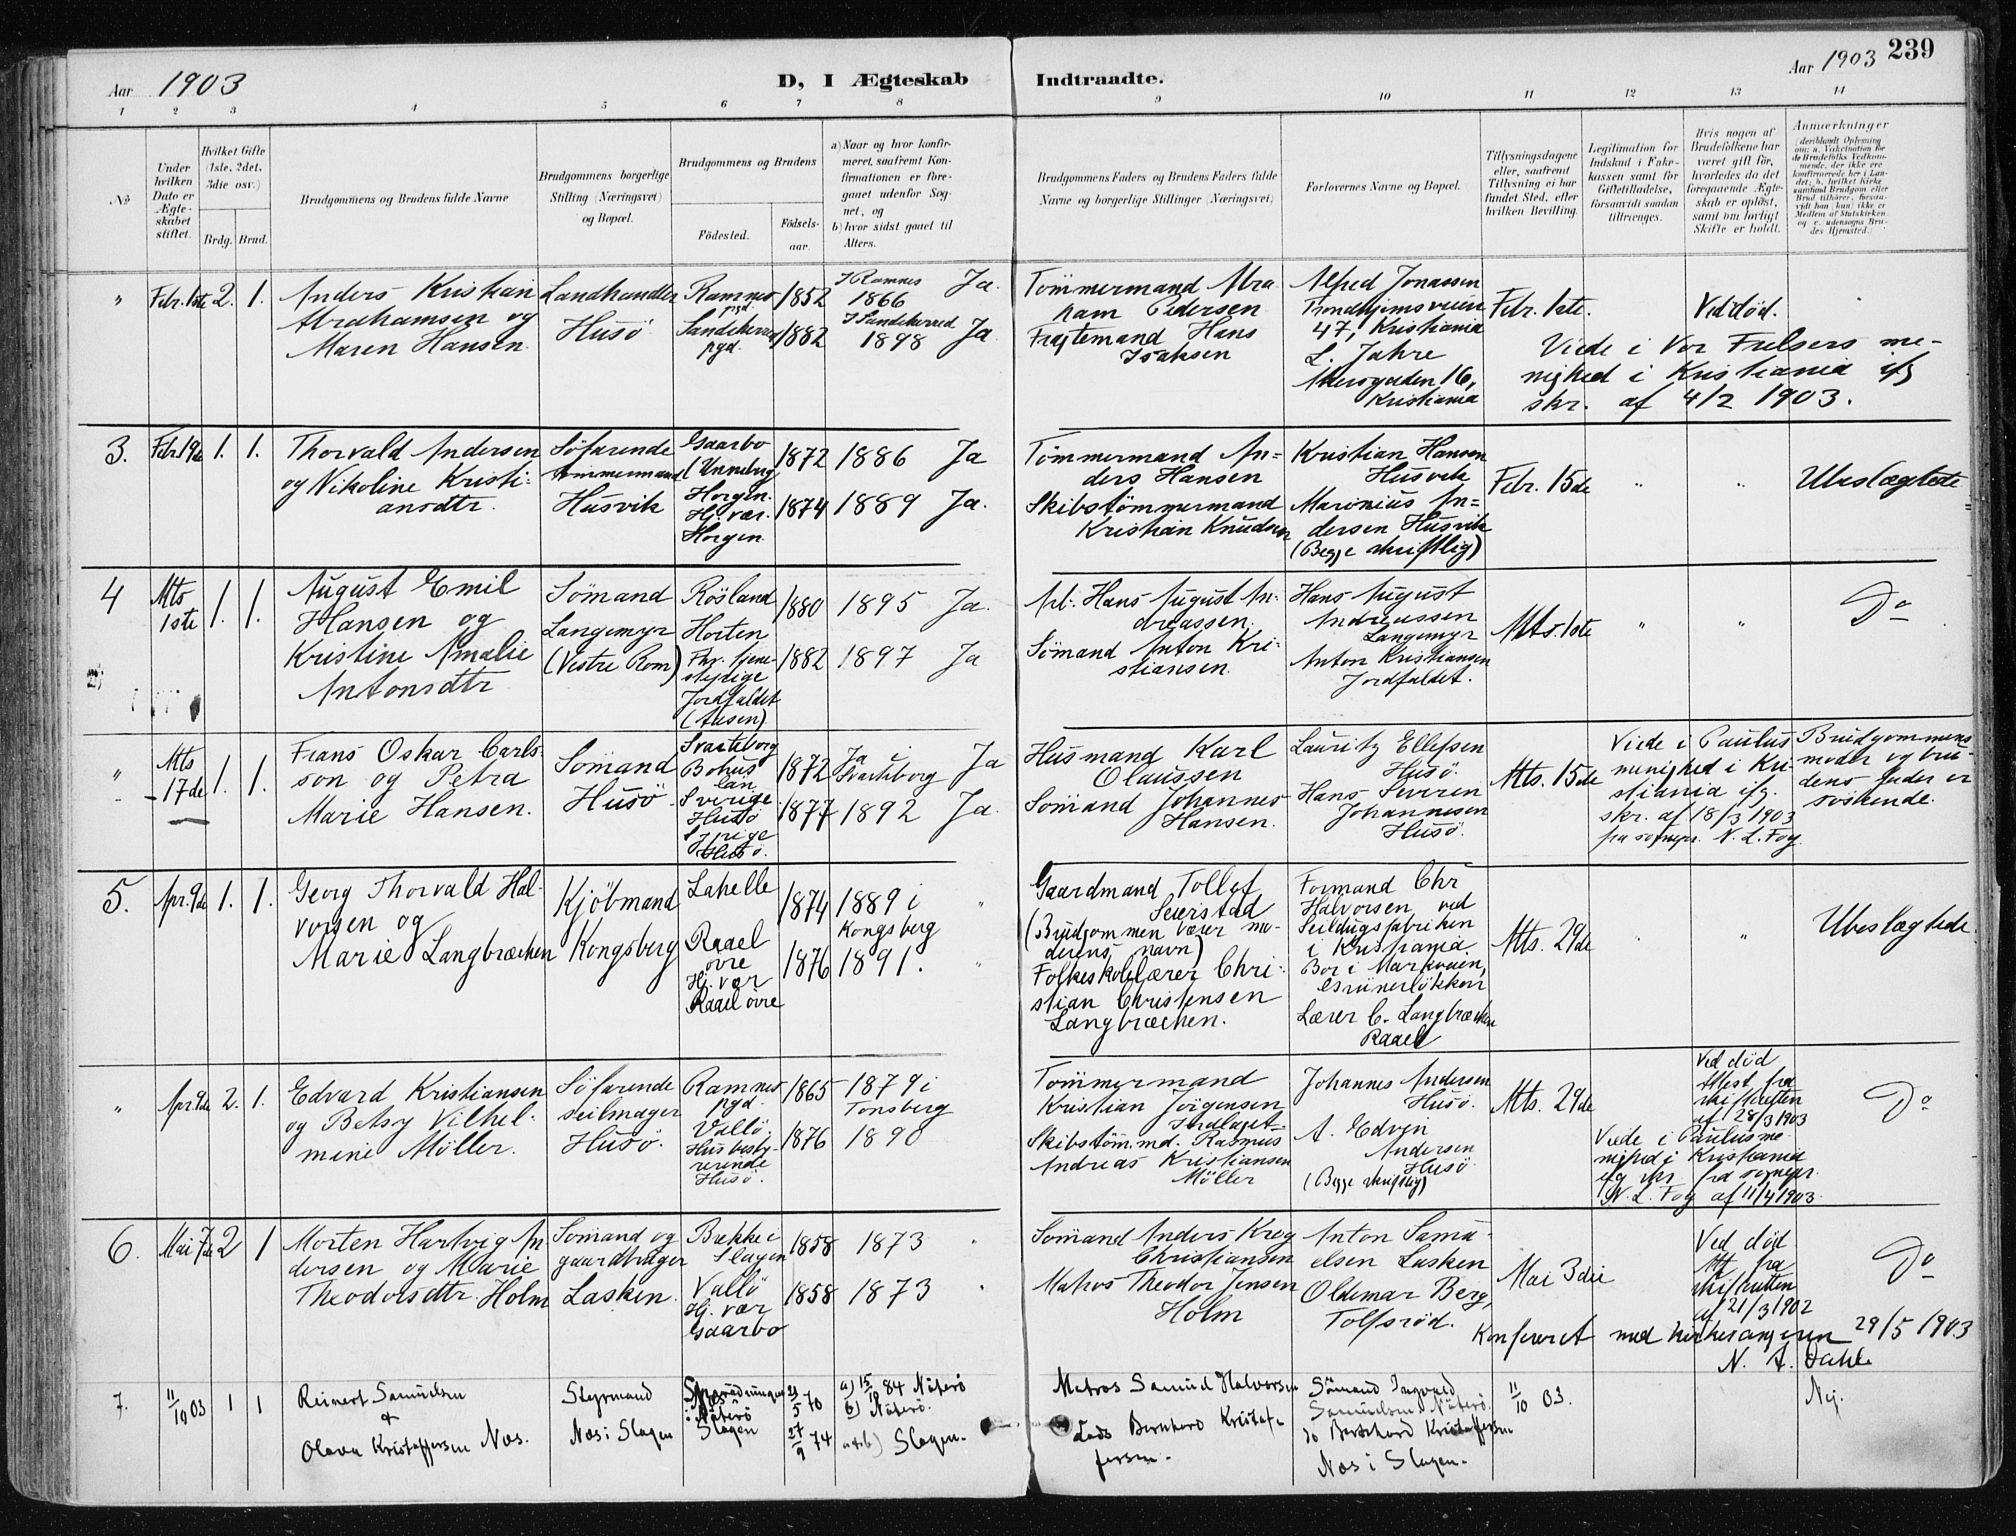 Aar 1903
D, I Ægteskab Indtraadte.
Aar 1903 239
1 2 3 4 5 6 7 8 9 10 11 12 13 14
No
Under hvilken Dato er Ægteskabet stiftet.
Hvilket Gifte (1ste, 2det, 3die osv.)
Brdg. Brud.
Brudgommens og Brudens fulde Navne
Brudgommens borgerlige Stilling (Næringsvei) og Bopæl.
Brudgommens og Brudens
Fødested.
Fødselsaar.
a) Naar og hvor konfirmeret, saafremt Konfirmationen er foregaaet udenfor Sognet, og
b) hvor sidst gaaet til Alters.
Brudgommens Faders og Brudens Faders fulde Navne og borgerlige Stillinger (Næringsvei)
Forlovernes Navne og Bopæl.
Tillysningsdagene eller, saafremt Tillysning ei har fundet Sted, efter hvilken Bevilling.
Legitimation for Indskud i Enkekassen samt for Giftetilladelse, forsaavidt saadan tiltrænges.
Hvis nogen af Brudefolkene har været gift før, hvorledes da det foregaaende Ægteskab er opløst, samt om lovligt Skifte er holdt.
Anmerkninger (deriblandt Oplysning om: a. Vakcination for de Brudefolks Vedkommende, der ikke ere konfirmerede her i Landet; b. hvilket Kirkesamfund Brudgom eller Brud tilhører, forsaavidt han (hun) ikke er Medlem af Statskirken, og c. udensogns Brudes Hjemsted.)
" Febr. 1ste 2. 1.
Anders Kristian
Abrahamsen og
Maren Hansen.
Landhandler
Husö
Ramnes
pgd.
Sandeherred
pgd.
1852
1882
I Ramnes
1866 Ja.
I Sandeherred
1898 Ja
Tömmermand Abra
ham Pedersen
Fragtemand Hans
Isaksen
Alfred Jonassen
Trondhjemsveien
47, Kristiania
L. Jahre
Akersgaden 16,
Kristiania
Febr. 1ste.
Ved död.
Viede i Vor Frelsers me-
nighed i Kristiania ifg
skr. af 4/2 1903.
3. Febr. 19de 1. 1.
Thorvald Andersen
og Nikoline Kristi-
ansdtr.
Söfarende
tömmermand
Husvik
Gaarbo
(Unneberg
Horgen.
Hj. vær.
Horgen
1872
1874
1886 Ja
1889 Ja.
Tömmermand An=
ders Hansen
Skibstömmermand
Kristian Knudsen
Kristian Hansen
Husvik
Maronius An=
dersen Husvik
(Begge skriftlig)
Febr. 15de
" "
Ubeslægtede
4 Mts 1ste 1. 1.
August Emil
Hansen og
Kristine Amalie
Antonsdtr
Sömand
Langemyr
(Vestre Rom)
Rösland
Horten
Jordfaldet
(Aasen)
1880
1882
1895 Ja.
1897 Ja
Arb. Hans August An-
dreassen.
Sömand Anton Kri-
stiansen.
Hans August
Andreassen
Langemyr
Anton Kristiansen
Jordfaldet.
Mts. 1ste
" "
Do
" Mts 17de 1. 1.
Frans Oskar Carls-
son og Petra
Marie Hansen.
Sömand
Husö
Svarteborg
Bohus
Län
Sverige
Husö
Husö.
1872
1877
Ja i
Svarteborg Ja
1892 Ja.
Husmand Karl
Olaussen
Sömand Johannes
Hansen.
Lauritz Ellefsen
Husö.
Hans Severin
Johannesen
Husö.
Mts. 15de
Viede i Paulus
menighed i Kri
stiania ifg.
skr. af 18/3 1903
fra sognepr. N. L. Fog.
Brudgommens
moder og bru-
dens fader er
söskende.
5. Apr. 9de 1. 1.
Georg Thorvald Hal-
vorsen og
Marie Langbrækken
Kjöbmand
Kongsberg
Lahelle
Raael
övre
Hj. vær
Raael övre
1874
1876
1889 i
Kongsberg
1891.
Gaardmand Tollef
Seierstad
(Brudgommen bærer mo-
derens navn)
Folkeskolelærer Chri-
stian Christensen
Langbrækken.
Formand Chr
Halvorsen ved
Seildugsfabriken
i Kristiania
Bor i Markveien,
Grünerlökken
Lærer C. Langbrækken
Raael
Mts. 29de
" "
Ubeslægtede.
" Apr. 9de 2. 1.
Edvard Kristiansen
og Betsy Vilhel-
mine Möller.
Söfarende
seilmager
Husö.
Ramnes
pgd.
Vallö.
Husbesty-
rerinde
Husö.
1865
1876
1879 i
Tönsberg
1890
Tömmermand
Kristian Jörgensen
Skibstöm.md. Rasmus
Andreas Kristiansen
Möller
Johannes Andersen
Husö.
A. Edvin
Andersen
Husö
(Begge skriftlig)
Mts. 29de
Ved död
Attest fra
skifteretten
af 28/3 1903
Viede i Paulus me
nighed i Kristiania
ifg skr. fra sognepr.
N. L. Fog af 11/4 1903.
Do
6. Mai 7de 2 1
Morten Hartvig An
dersen og Marie
Theodorsdtr. Holm
Sömand og
gaardbruger
Lasken.
Bekke i
Slagen
Vallö
Hj. vær
Gaarbo
1858
1858
1873
1873
Sömand Anders Kreg
Christiansen
Matros Theodor Jensen
Holm
Anton Samu-
elsen Lasken
Oldemar Berg,
Tolfsröd.
Mai 3die
Ved död
Att fra
skifteretten
af 21/3 1902
Do
Konfereret med kirkesangeren 29/5 1903
N. A. Dahle
7. 11/10 03 1 1
Reinert Samuelsen
&
Olava Kristoffersen Næs.
Styrmand
Næs i Slagen
i Nöterö
Slagen
23/5 70
27/9 74
a) 15/10 84 Nöterö
b) Nöterö.
a & b) Slagen.
Matros Samuel Halvorsen
Lods Bernhard Kristof-
fersen.
Sömand Ingvald
Samuelsen Nöterö.
Bernhard Kristoffersen
Næs i Slagen.
11/10 03.
Nej.